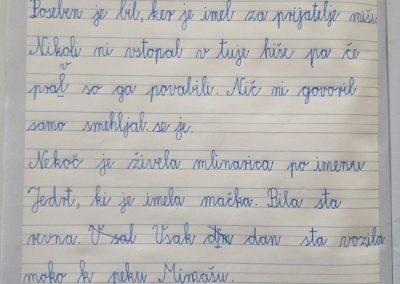 Poseben je bil, ker je imel za prijatelje miši.
Nikoli ni vstopal v tuje hiše pa če
prav so ga povabili. Nič ni govoril
samo smehljal se je.
Nekoč je živela mlinarica po imenu
Jedrt, ki je imela mačka. Bila sta
revna. Vsak dan sta vozila
moko k peku Mimašu.